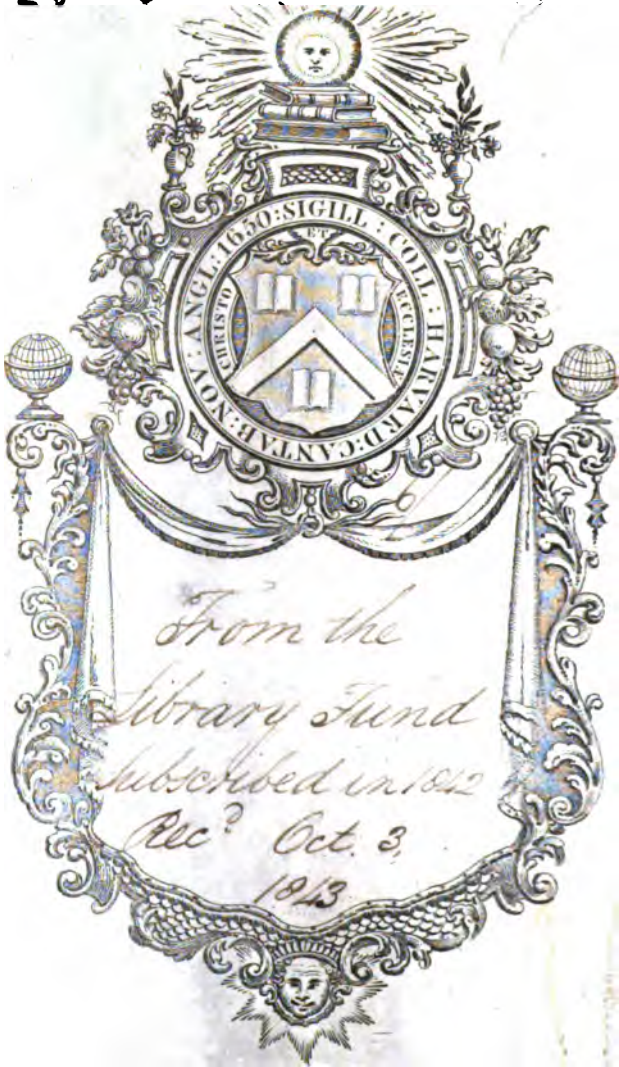 SIGILL : COLL : HARVARD : CANTAB : NOV : ANGL : 1650 :
CHRISTO
ET
ECCLESIÆ
From the
Library Fund
Subscribed in 1842
Recd Oct. 3,
1843